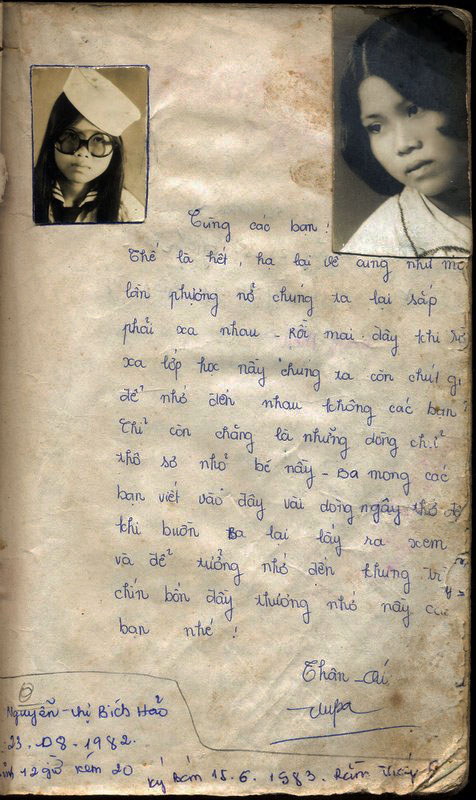 Cùng các bạn!
Thế là hết, hạ lại về cũng như mọi
lần phượng nổ chúng ta lại sắp
phải xa nhau - Rồi mai đây khi
xa lớp học này chúng ta còn chút gì
để nhớ đến nhau không các bạn?
Chỉ còn chăng là những dòng chữ
thô sơ nhỏ bé này - Ba mong các
bạn viết vào đây vài dòng ngây thơ để
khi buồn Ba lại lấy ra xem
và để tưởng nhớ đến
chín bồn đầy thương nhớ này của
bạn nhé!
Thân - Ái
Nguyễn-thị Bích Hảo
23. 08 - 1982.
12 giờ kém 20
15. 6. 1983.